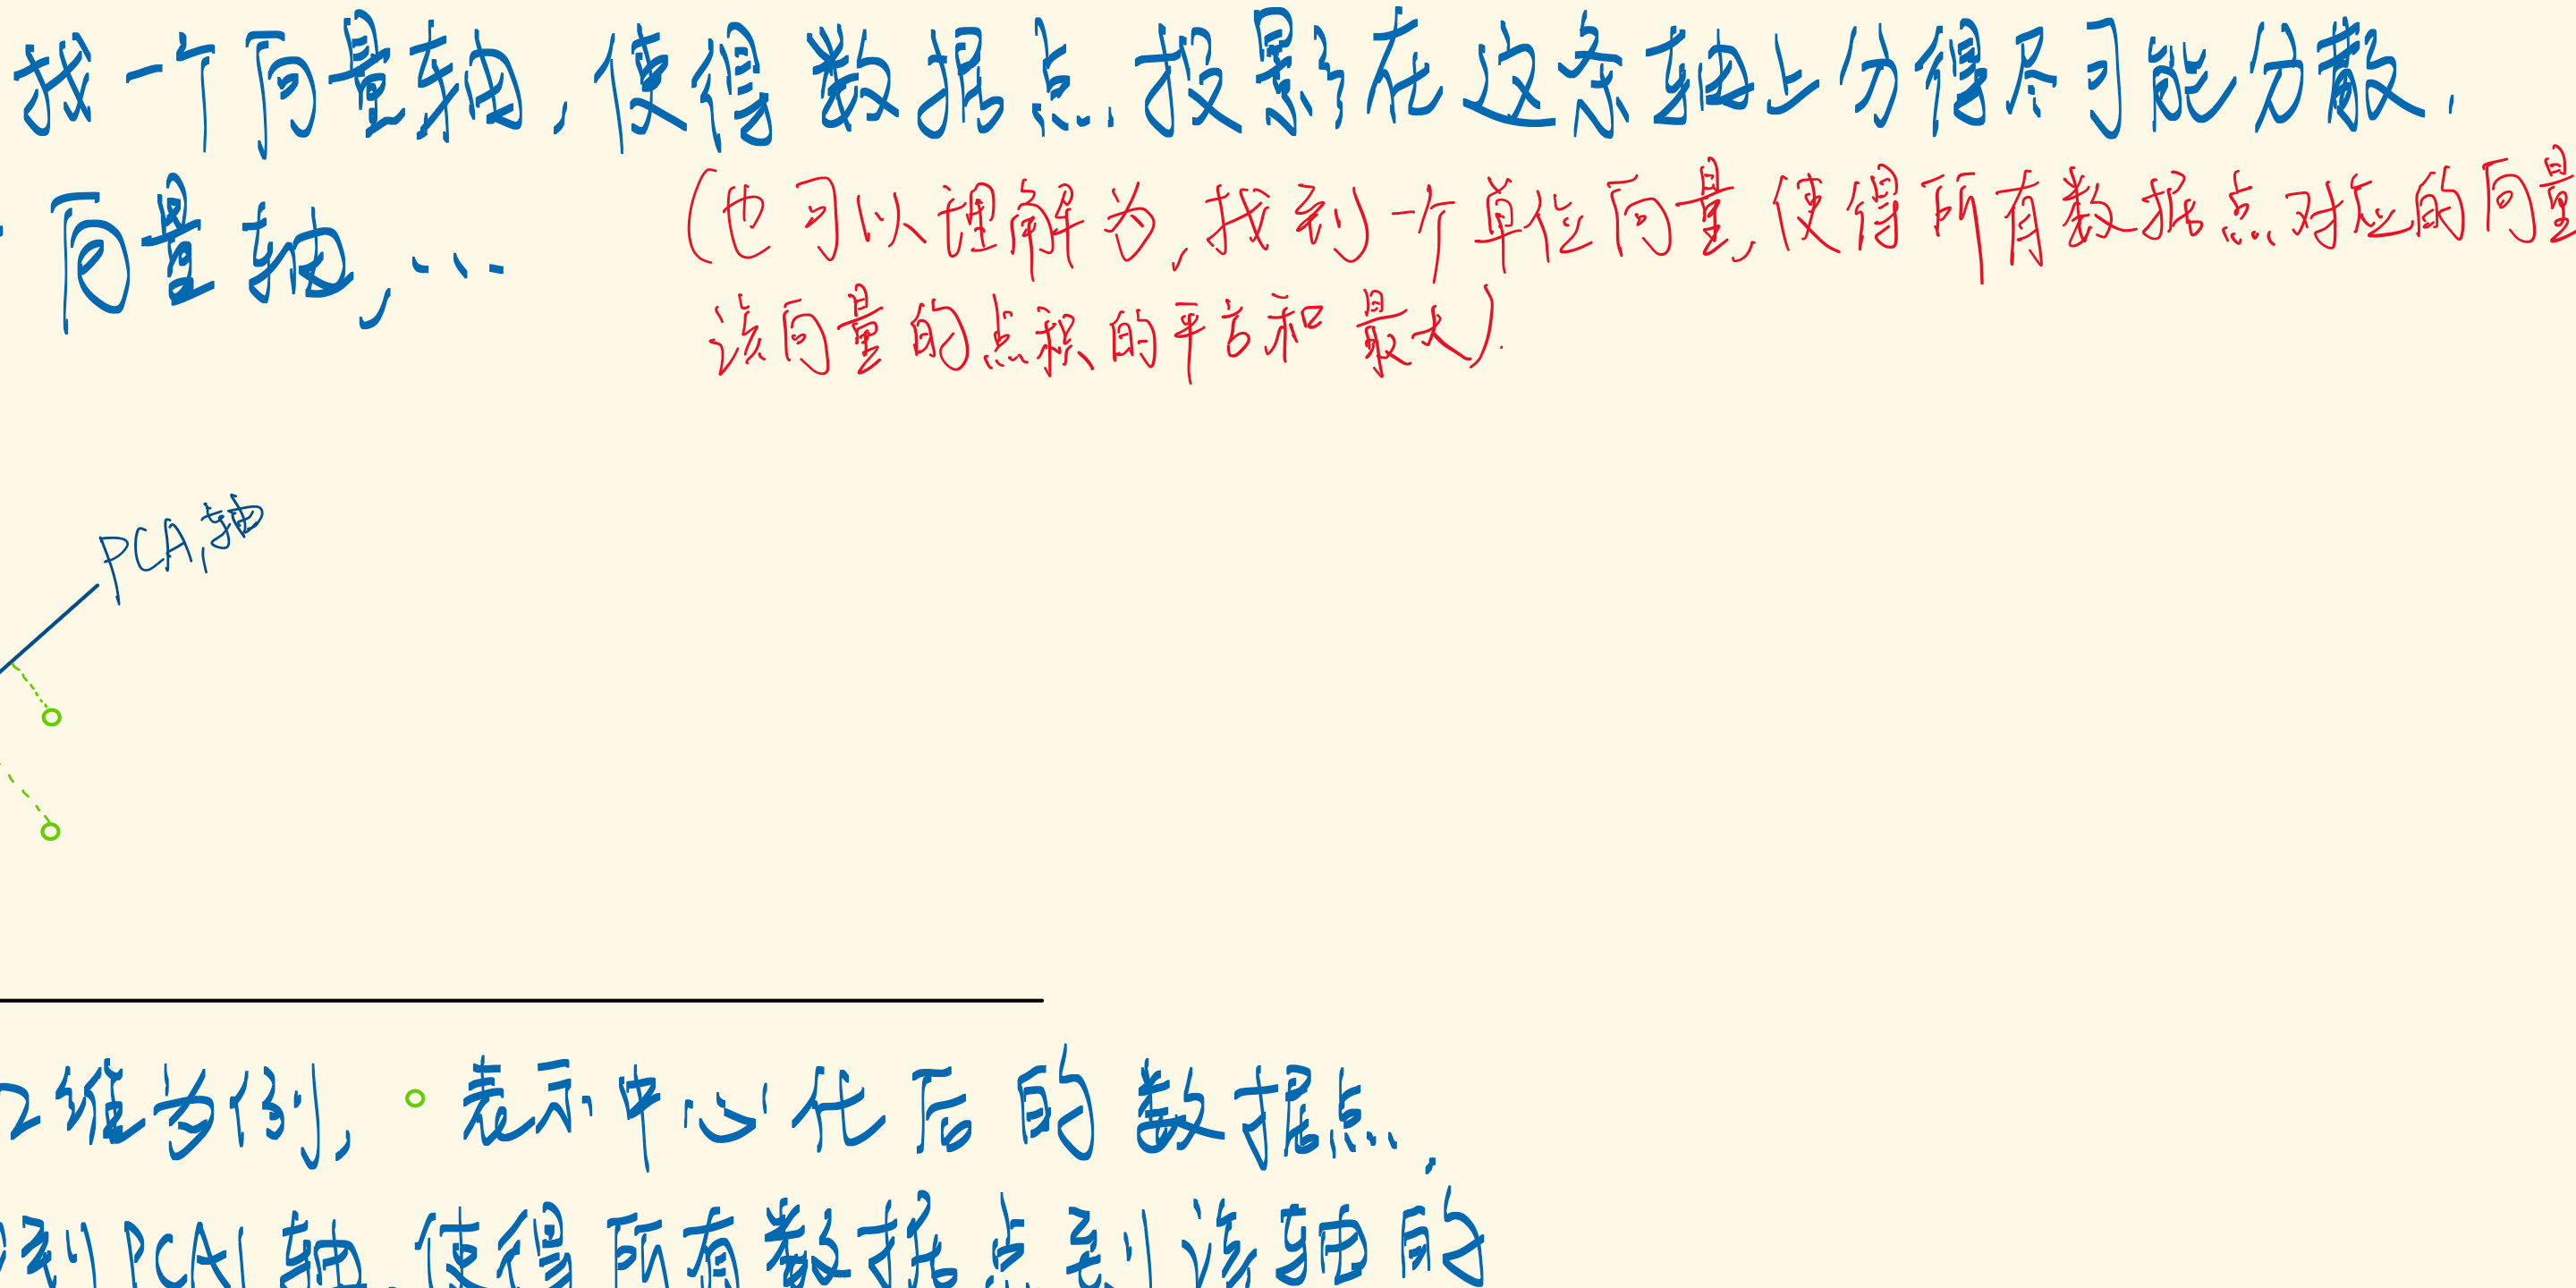 找一个向量轴,使得数据点投影在这条轴上分得尽可能分散.
向量轴,...
(也可以理解为,找到一个单位向量,使得所有数据点对应的向量
该向量的点积的平方和最大).
PCA1轴
2维为例,○表示中心化后的数据点,
到PCA1轴,使得所有数据点到该轴的